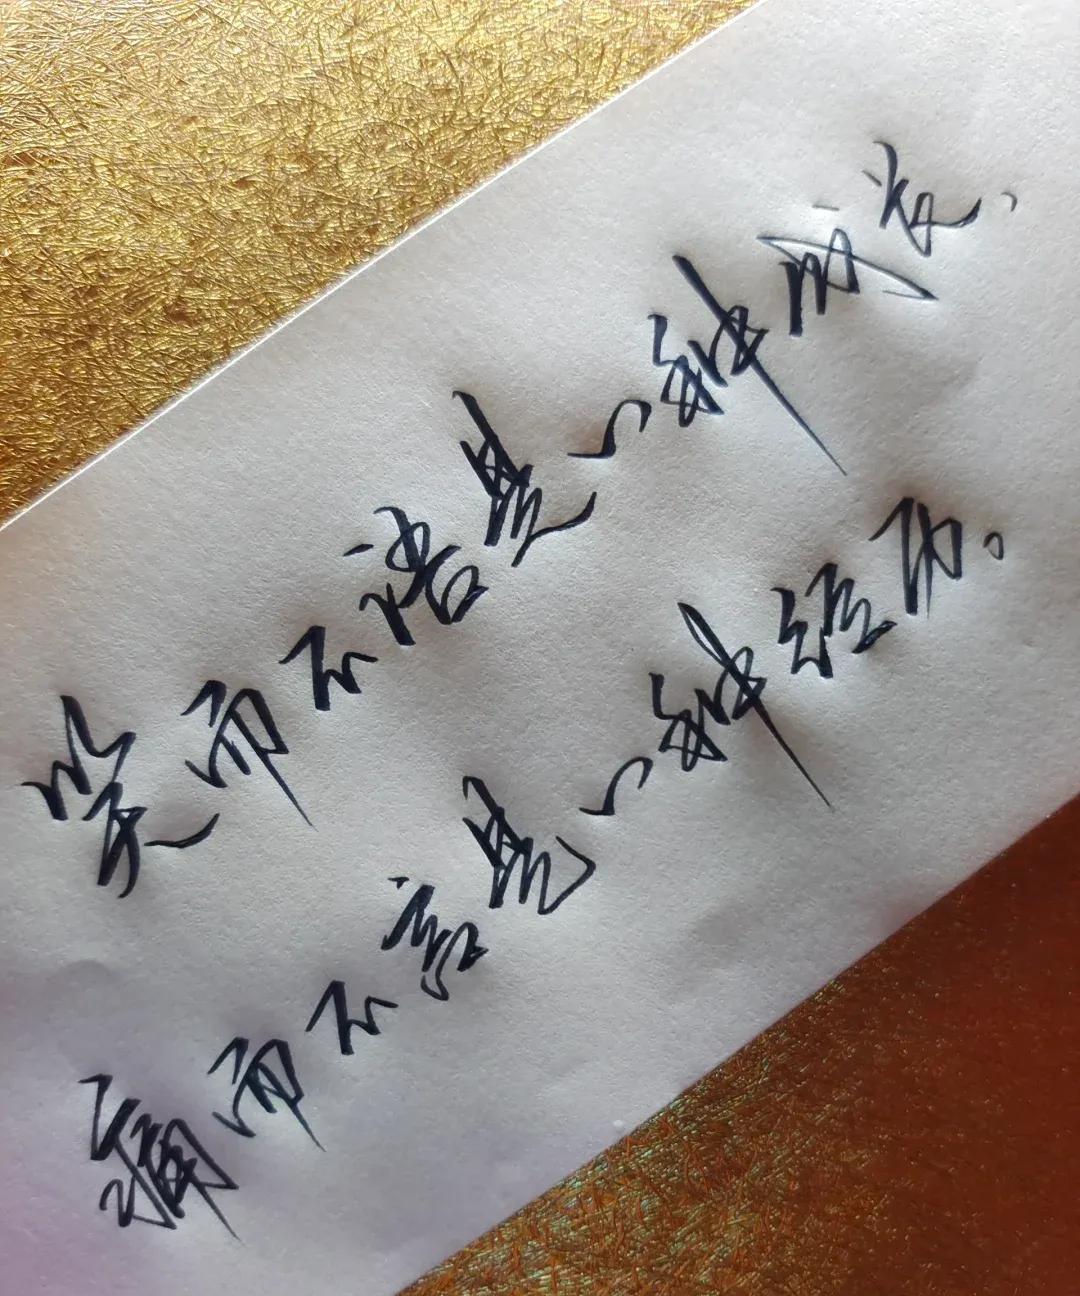 笑而不语是一种成长.
痛而不言是一种经历.